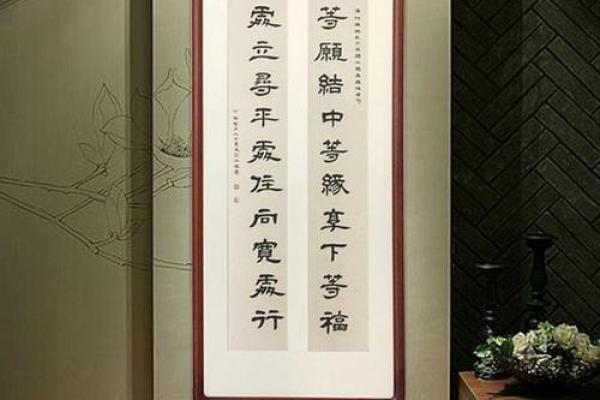 等願結中等緣享下等福
處立尋平處住向寬處行